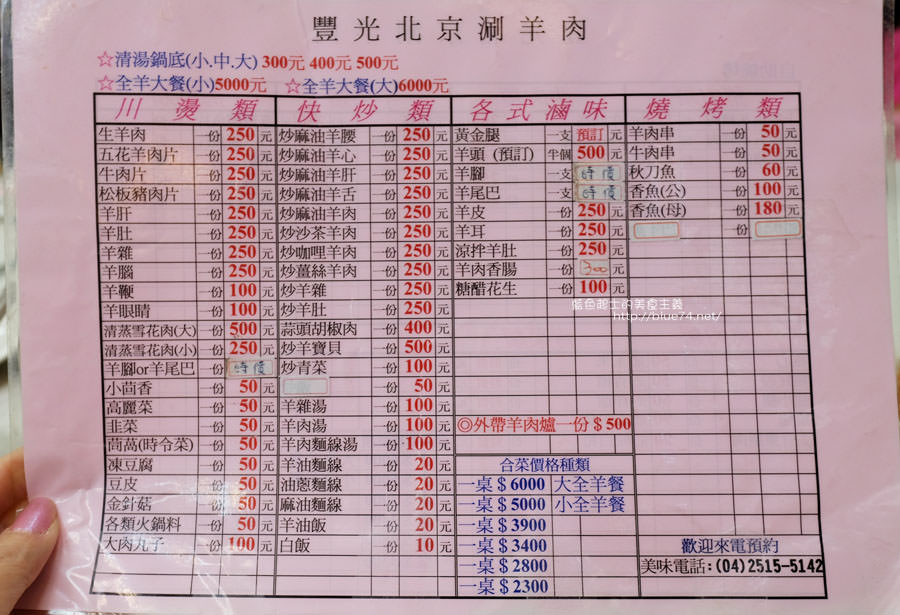 豐光北京涮羊肉
☆清湯鍋底(小.中.大) 300元 400元 500元
☆全羊大餐(小)5000元 ☆全羊大餐(大)6000元
川燙類
生羊肉 一份 250 元
五花羊肉片 一份 250 元
牛肉片 一份 250 元
松板豬肉片 一份 250 元
羊肝 一份 250 元
羊肚 一份 250 元
羊雜 一份 250 元
羊腦 一份 250 元
羊鞭 一份 100 元
羊眼睛 一份 100 元
清蒸雪花肉(大) 一份 500 元
清蒸雪花肉(小) 一份 250 元
羊腳or羊尾巴 一份 時價
小茴香 一份 50 元
高麗菜 一份 50 元
韭菜 一份 50 元
茼萵(時令菜) 一份 50 元
凍豆腐 一份 50 元
豆皮 一份 50 元
金針菇 一份 50 元
各類火鍋料 一份 50 元
大肉丸子 一份 100 元
快炒類
炒麻油羊腰 一份 250 元
炒麻油羊心 一份 250 元
炒麻油羊肝 一份 250 元
炒麻油羊舌 一份 250 元
炒麻油羊肉 一份 250 元
炒沙茶羊肉 一份 250 元
炒咖哩羊肉 一份 250 元
炒薑絲羊肉 一份 250 元
炒羊雜 一份 250 元
炒羊肚 一份 250 元
蒜頭胡椒肉 一份 400 元
炒羊寶貝 一份 500 元
炒青菜 一份 100 元
一份 50 元
羊雜湯 一份 100 元
羊肉湯 一份 100 元
羊肉麵線湯 一份 100 元
羊油麵線 一份 20 元
油蔥麵線 一份 20 元
麻油麵線 一份 20 元
羊油飯 一份 20 元
白飯 一份 10 元
各式滷味
黃金腿 一支 預訂 元
羊頭(預訂) 半個 500 元
羊腳 一支 時價
羊尾巴 一支 時價
羊皮 一份 250 元
羊耳 一份 250 元
涼拌羊肚 一份 250 元
羊肉香腸 一份 300 元
糖醋花生 一份 100 元
◎外帶羊肉爐一份$500
合菜價格種類
一桌$6000 大全羊餐
一桌$5000 小全羊餐
一桌$3900
一桌$3400
一桌$2800
一桌$2300
燒烤類
羊肉串 一份 50 元
牛肉串 一份 50 元
秋刀魚 一份 60 元
香魚(公) 一份 100 元
香魚(母) 一份 180 元
一份
歡迎來電預約
美味電話:(04)2515-5142
藍色起士的美食主義
http://blue74.net/